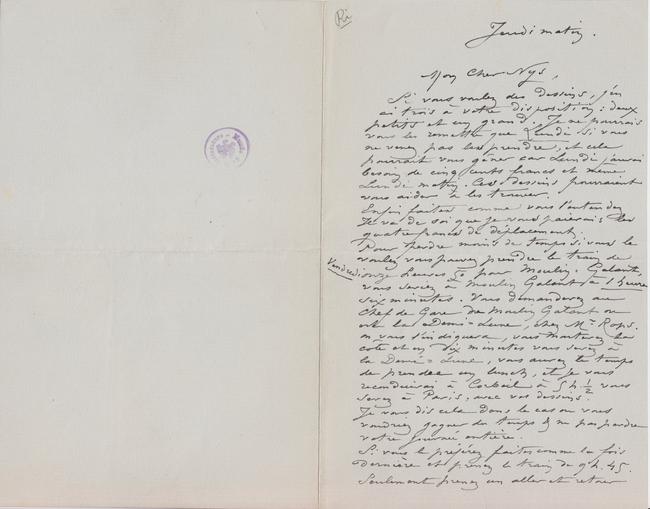 Ri
Jeudi matin.
Mon Cher Nys,
Si vous voulez des dessins, j'en
ai trois à votre disposition : deux
petits et un grand. Je ne pourrais
vous les remettre que Lundi si vous
ne venez pas les prendre, et cela
pourrait vous gêner car Lundi j'aurai
besoin de cinq cents francs et même
Lundi matin. Ces dessins pourraient
vous aider à les trouver.
Enfin faites comme vous l'entendez
Il va de soi que je vous paierais les
quatre francs de déplacement.
Pour perdre moins de temps si vous le
voulez vous pouvez prendre le train de
Vendredi onze heures 50 pour Moulin-Galant,
vous serez à Moulin Galant à 1 heure
six minutes. Vous demanderez au
Chef de Gare de Moulin Galant où
est la Demi-Lune, chez Mr Rops.
on vous l'indiquera, vous monterez la
côte et en dix minutes vous serez à
la Demi-Lune, vous aurez le temps
de prendre un lunch, et je vous
reconduirai à Corbeil à 5 h ½ vous
serez à Paris, avec vos dessins.
Je vous dis cela dans le cas où vous
voudriez gagner du temps & ne pas perdre
votre journée entière.
Si vous le préférez faites comme la fois
dernière et prenez le train de 9h. 45.
Seulement prenez un aller et retour